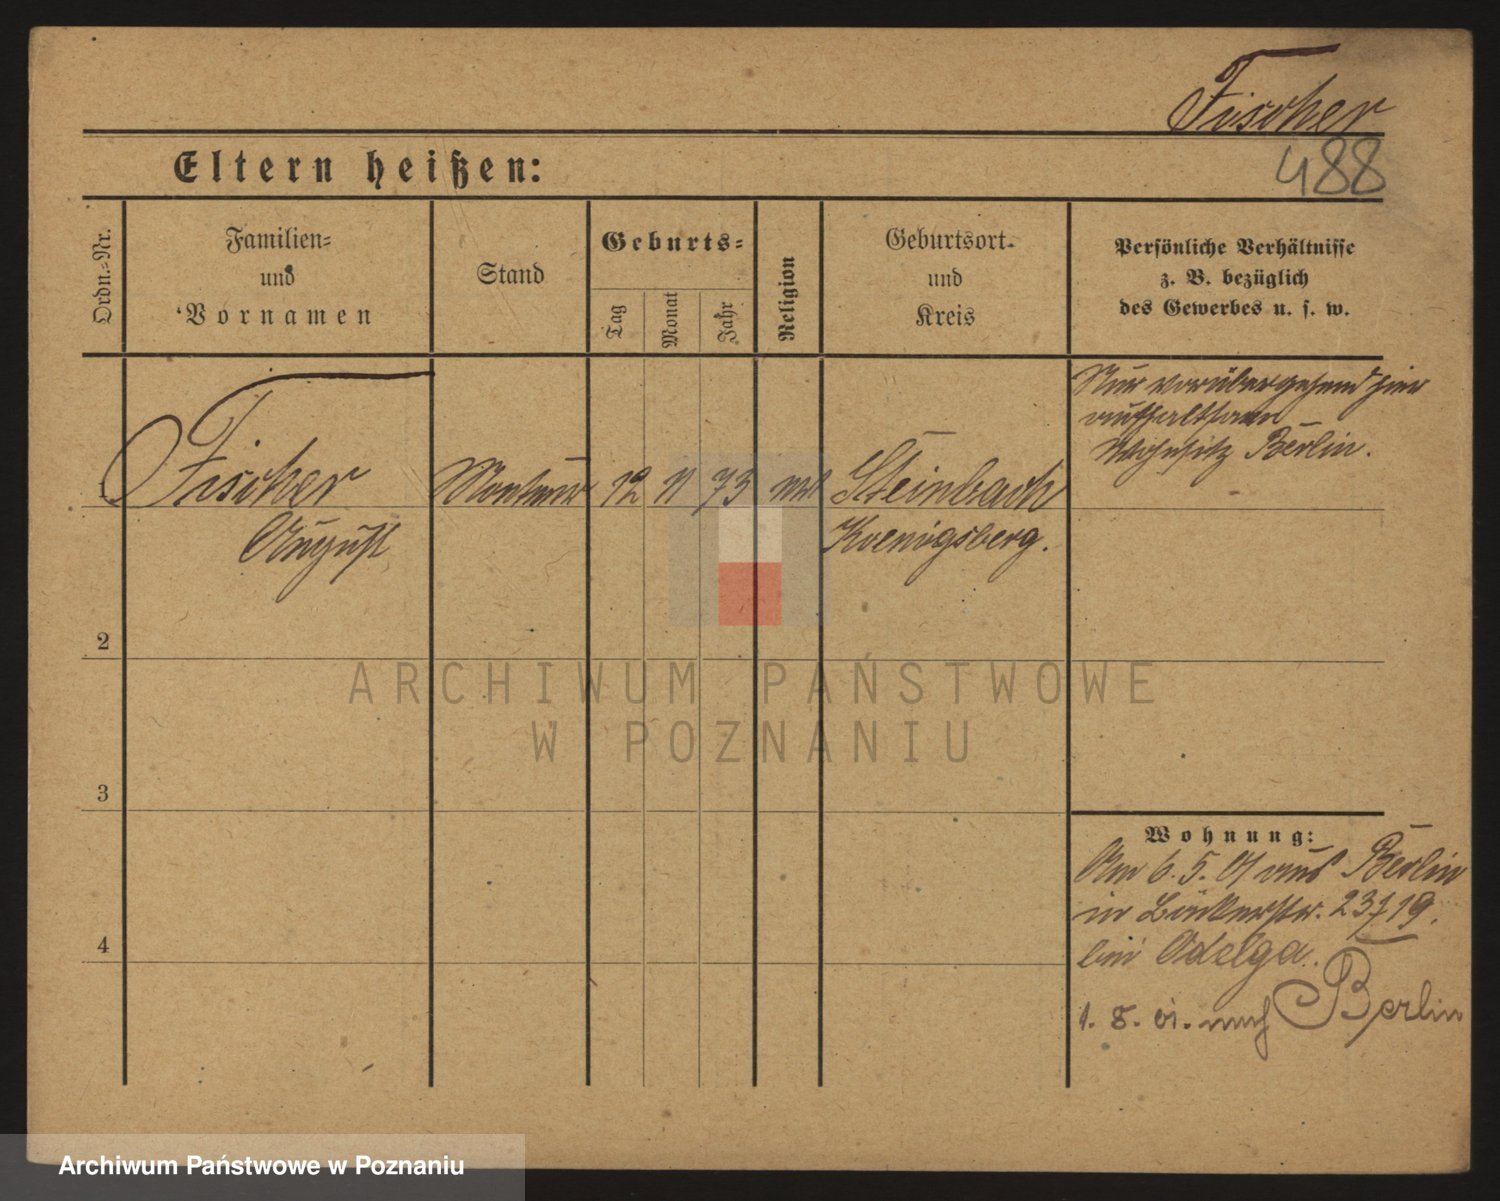 Fischer
488
Eltern heißen:
Ordn.-Nr.
Familien-
und
Vornamen
Stand
Geburts-
Tag
Monat
Jahr
Religion
Geburtsort-
und
Kreis
Persönliche Verhältnisse
z. B. bezüglich
des Gewerbes u. s. w.
Nur vorübergehend hier
aufhaltsam
Wohnsitz Berlin.
1 Fischer Monteur 12 11 73 Steinbach
August Koenigsberg.
2
3
4
Wohnung:
Am 6. 5. 01 aus Berlin
in Bäckerstr. 23/19.
bei Adelga.
1. 8. 01. nach Berlin
ARCHIWUM PAŃSTWOWE
W POZNANIU
Archiwum Państwowe w Poznaniu